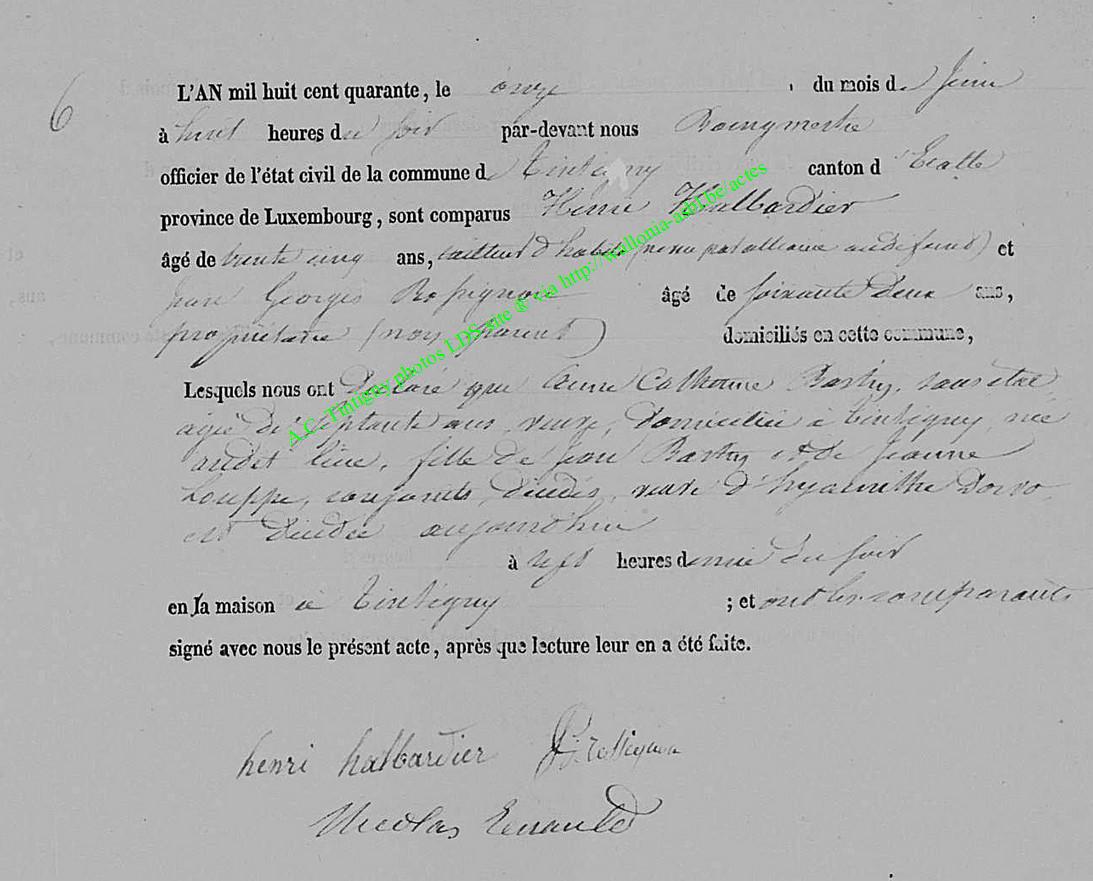 6
L'AN mil huit cent quarante, le onze du mois de Juin
à huit heures du soir par-devant nous Bourgmestre
officier de l'état civil de la commune d Tintigny canton d'Etalle
province de Luxembourg, sont comparus Henri Halbardier
âgé de trente cinq ans, tailleur d'habits (neveu par alliance au défunt) et
Jean Georges Rossignon âgé de soixante deux ans,
propriétaire (non parent) domiciliés en cette commune,
Lesquels nous ont déclaré que Anne Catherine sans état
agée de ans, veuve, domiciliée à Tintigny née
audit lieu, fille de Jean et de Jeanne
Louppe, conjoints décédés, veuve d'hyacinthe
est décédée aujourd'hui
à sept heures demie du soir
en sa maison à Tintigny ; et ont les comparants
signé avec nous le présent acte, après que lecture leur en a été faite.
henri halbardier Rossignon
Nicolas
A.C. Tintigny photos LDS site & via http://wallonia-asbl.be/actes